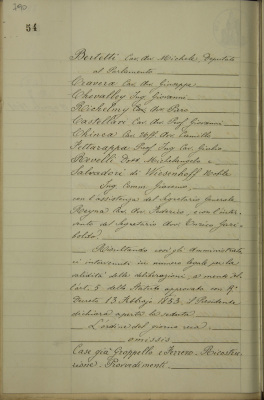 190
54
Bertetti Cav. Avv. Michele, Deputato
al Parlamento
Cravera Cav. Avv. Giuseppe
Chevalley Ing. Giovanni
Richelmy Cav. Avv.
Castellari Cav. Avv. Prof. Giovanni
Chiusa Cav. Uff. Avv. Camillo
Settarappa Prof. Ing. Cav. Giulio
Revelli Dott. Michelangelo e
Salvadori di Wiesenhoff Nobile
Ing. Comm. Giacomo,
con l'assistenza del Segretario Generale
Avv. e con l'inter-
vento del Segretario Avv. Enrico Gari-
boldo.
Risultando con gli
intervenuti in numero legale per la
validità delle deliberazioni a mente del-
l'art. 5 dello Statuto approvato con R°
Decreto 13 Febbraio 1853, il Presidente
dichiara aperta la seduta.
L'ordine del giorno reca:
omissis
Case già Groppello e - Ricostru-
zione - Provvedimenti.